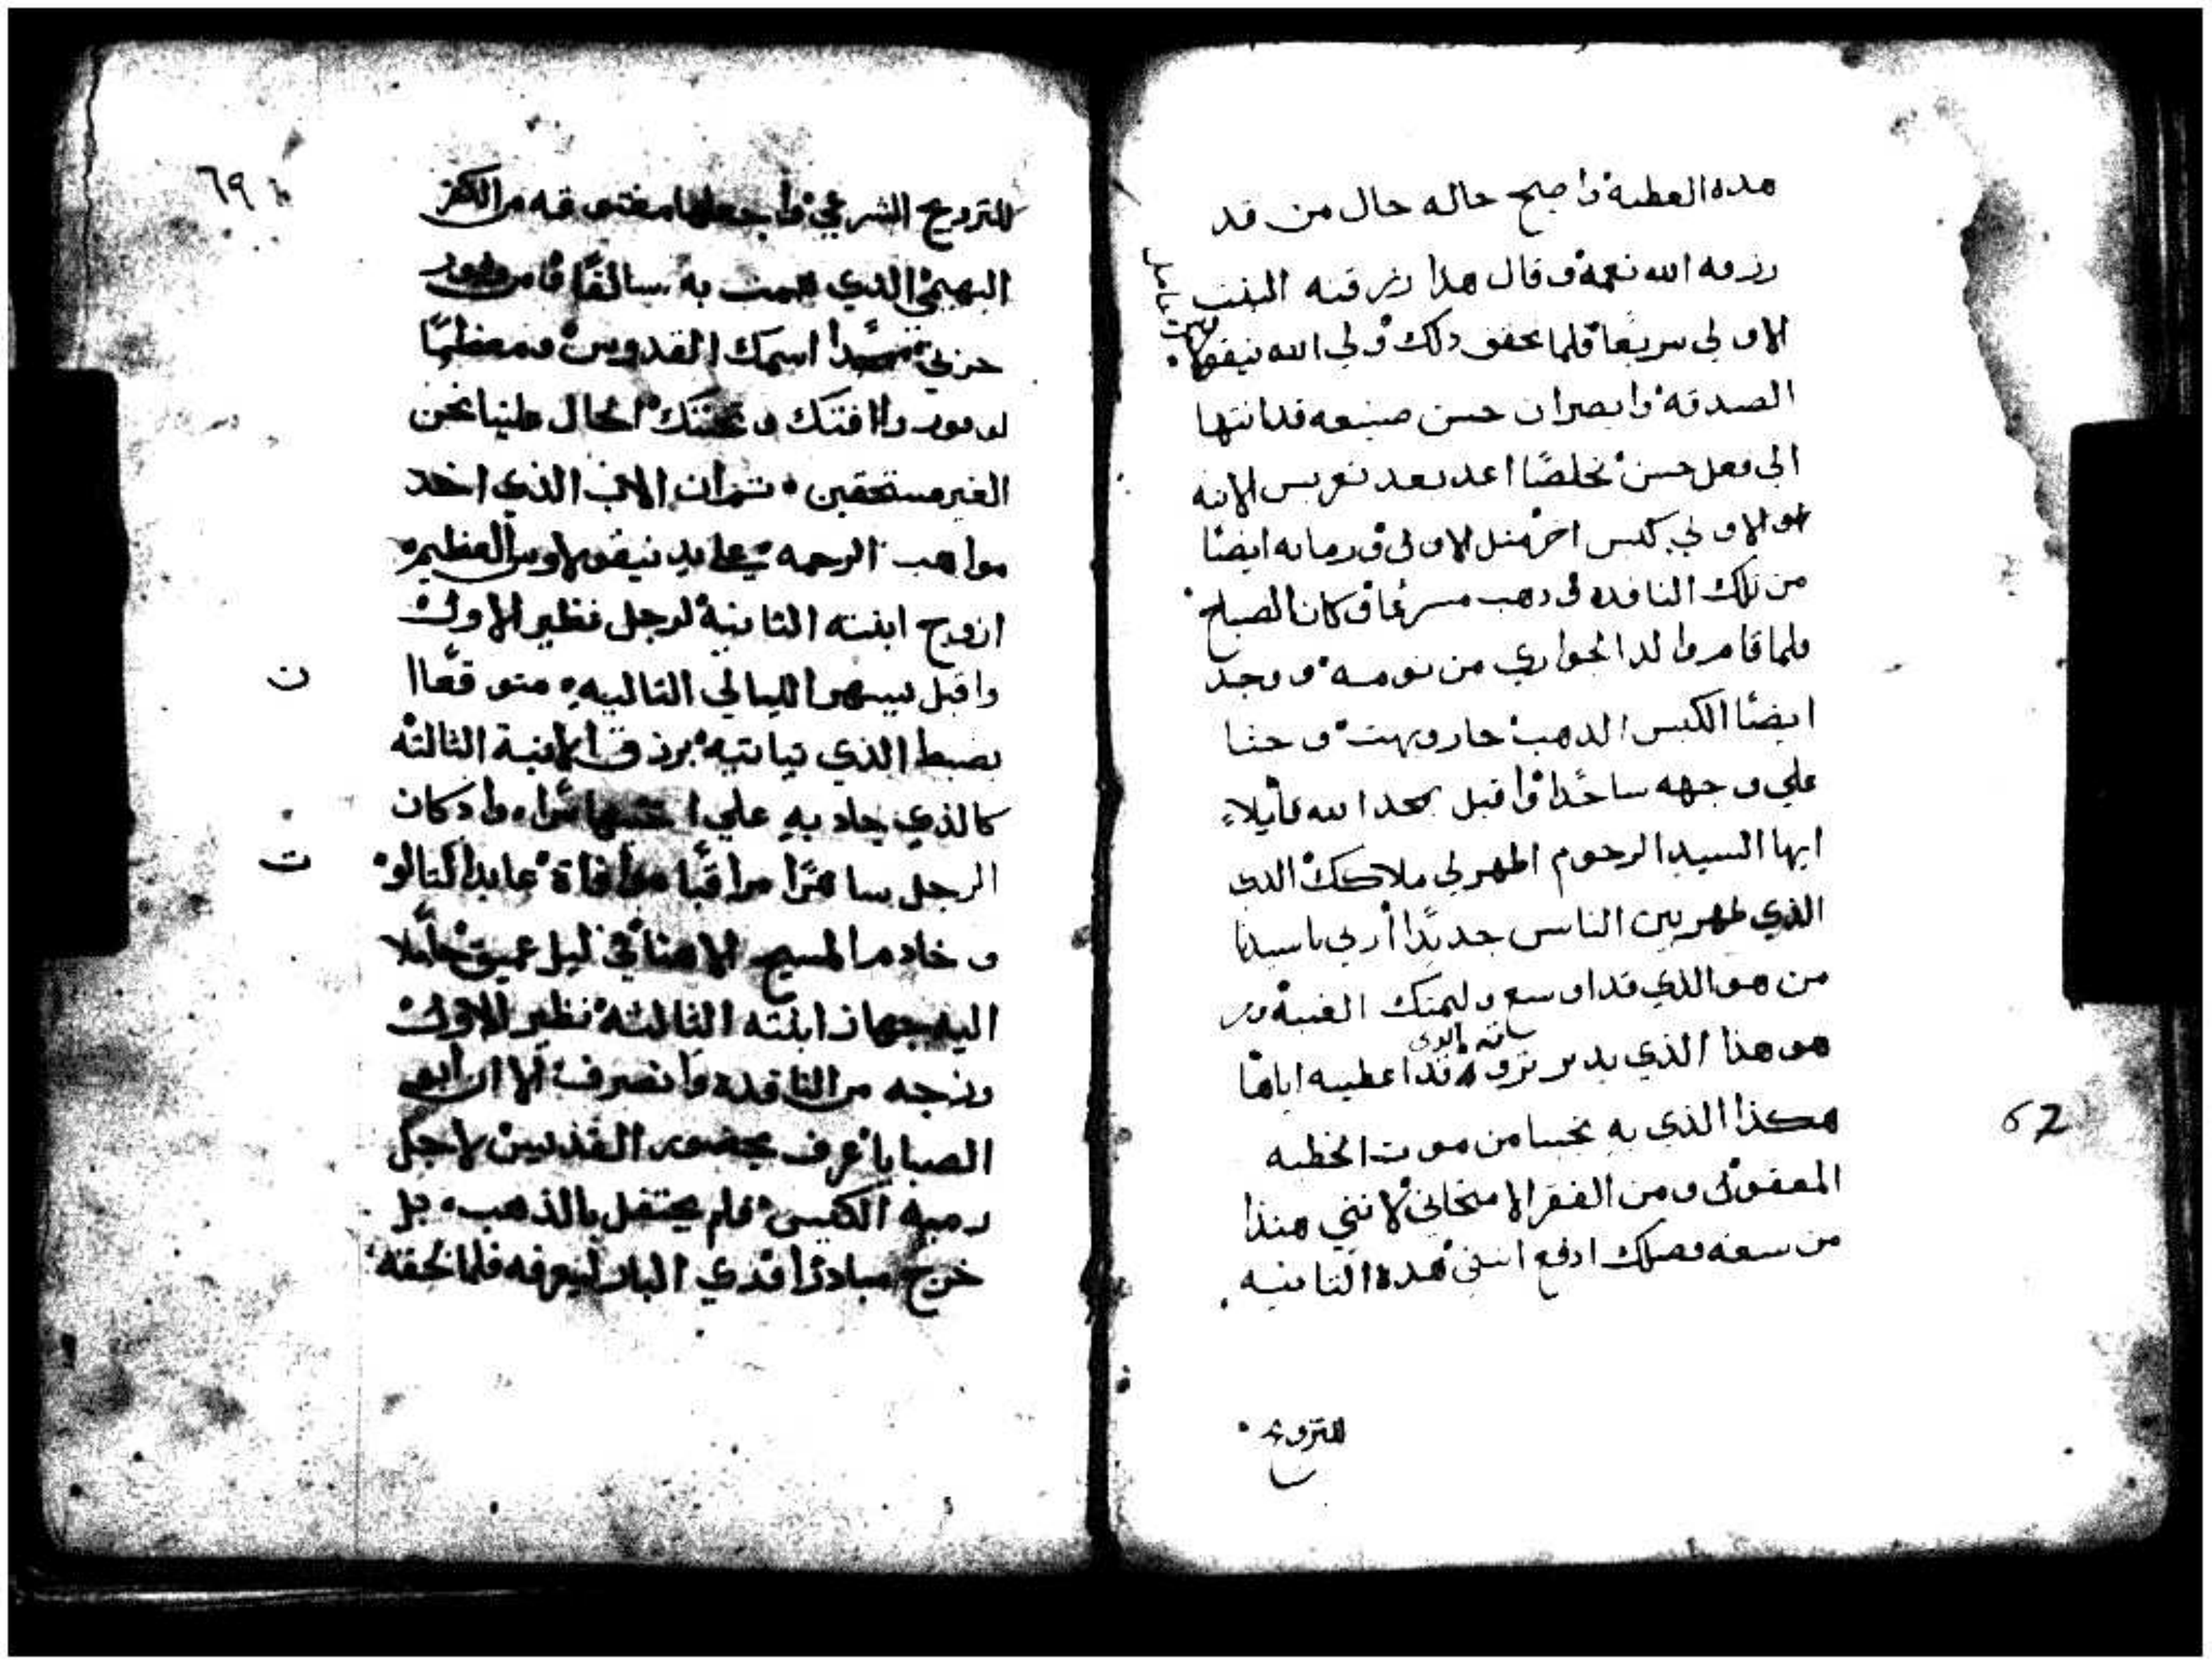 هده العطية واصبح حاله حال من قد
رزقه الله نعمة وقال هدا رزقته البنت
الاولي سريعا فلما تحقق دلك ولي الله نيقولاوس
الصدقة وابصر ان حسن صنيعه قد انتها
الي فعل حسن مخلصا اعد بعد تعريس الابنه
الاولي كيس اخر مثل الاولى ورماه ايضا
من تلك النافده ودهب مسرعا وكان الصباح
فلما قام والد الجواري من نومه ووجد
ايضا الكيس الدهب حار وبهت وجثا
علي وجهه ساجدا واقبل يمجد الله قايلا
ايها السيد الرحوم اظهر لي ملاكك الدي
الذي ظهر بين الناس جديدا أرني يا سيدنا
من هو الذي قد اوسع
هو هذا الذي يدبر ثروه قد اعطيه اياها
هكذا الذي به نحيا من موت الخطيه
المعقول ومن الفقر الامتحاني لانني هنذا
من سعة فضلك ادفع ابنتي هده الثانيه
للتزويج
٦٩
للتزويج الشرعي واجعلها معتوقه من الكفر
البهيمي الدي هممت به سالفا
حزني ممجدا اسمك القدوس ومعظما
رافتك ومحبتك الحال علينا نحن
الغير مستحقين ثم ان الاب الذي اخد
مواهب الرحمه من يد نيقولاوس العظيم
ازوج ابنته الثانية لرجل نظير الاولى
واقبل يسهر الليالي التاليه متوقعا
يضبط الذي ياتيه برزق الابنة الثالثة
كالذي جاد به علي اختيها سرا واد كان
الرجل ساهرا مراقبا موافاة عابد التالوت
وخادم المسيح الاهنا في ليل عميق حاملا
اليه جهاز ابنته الثالثة نظير الاولى
وزجه من النافده وانصرف الا ان ابو
الصبايا عرف بحضور القديس لاجل
رميه الكيس فلم يحتفل بالذهب بل
خرج مبادرا قدي البار ليعرفه فلما لحقه
ن
ت
67